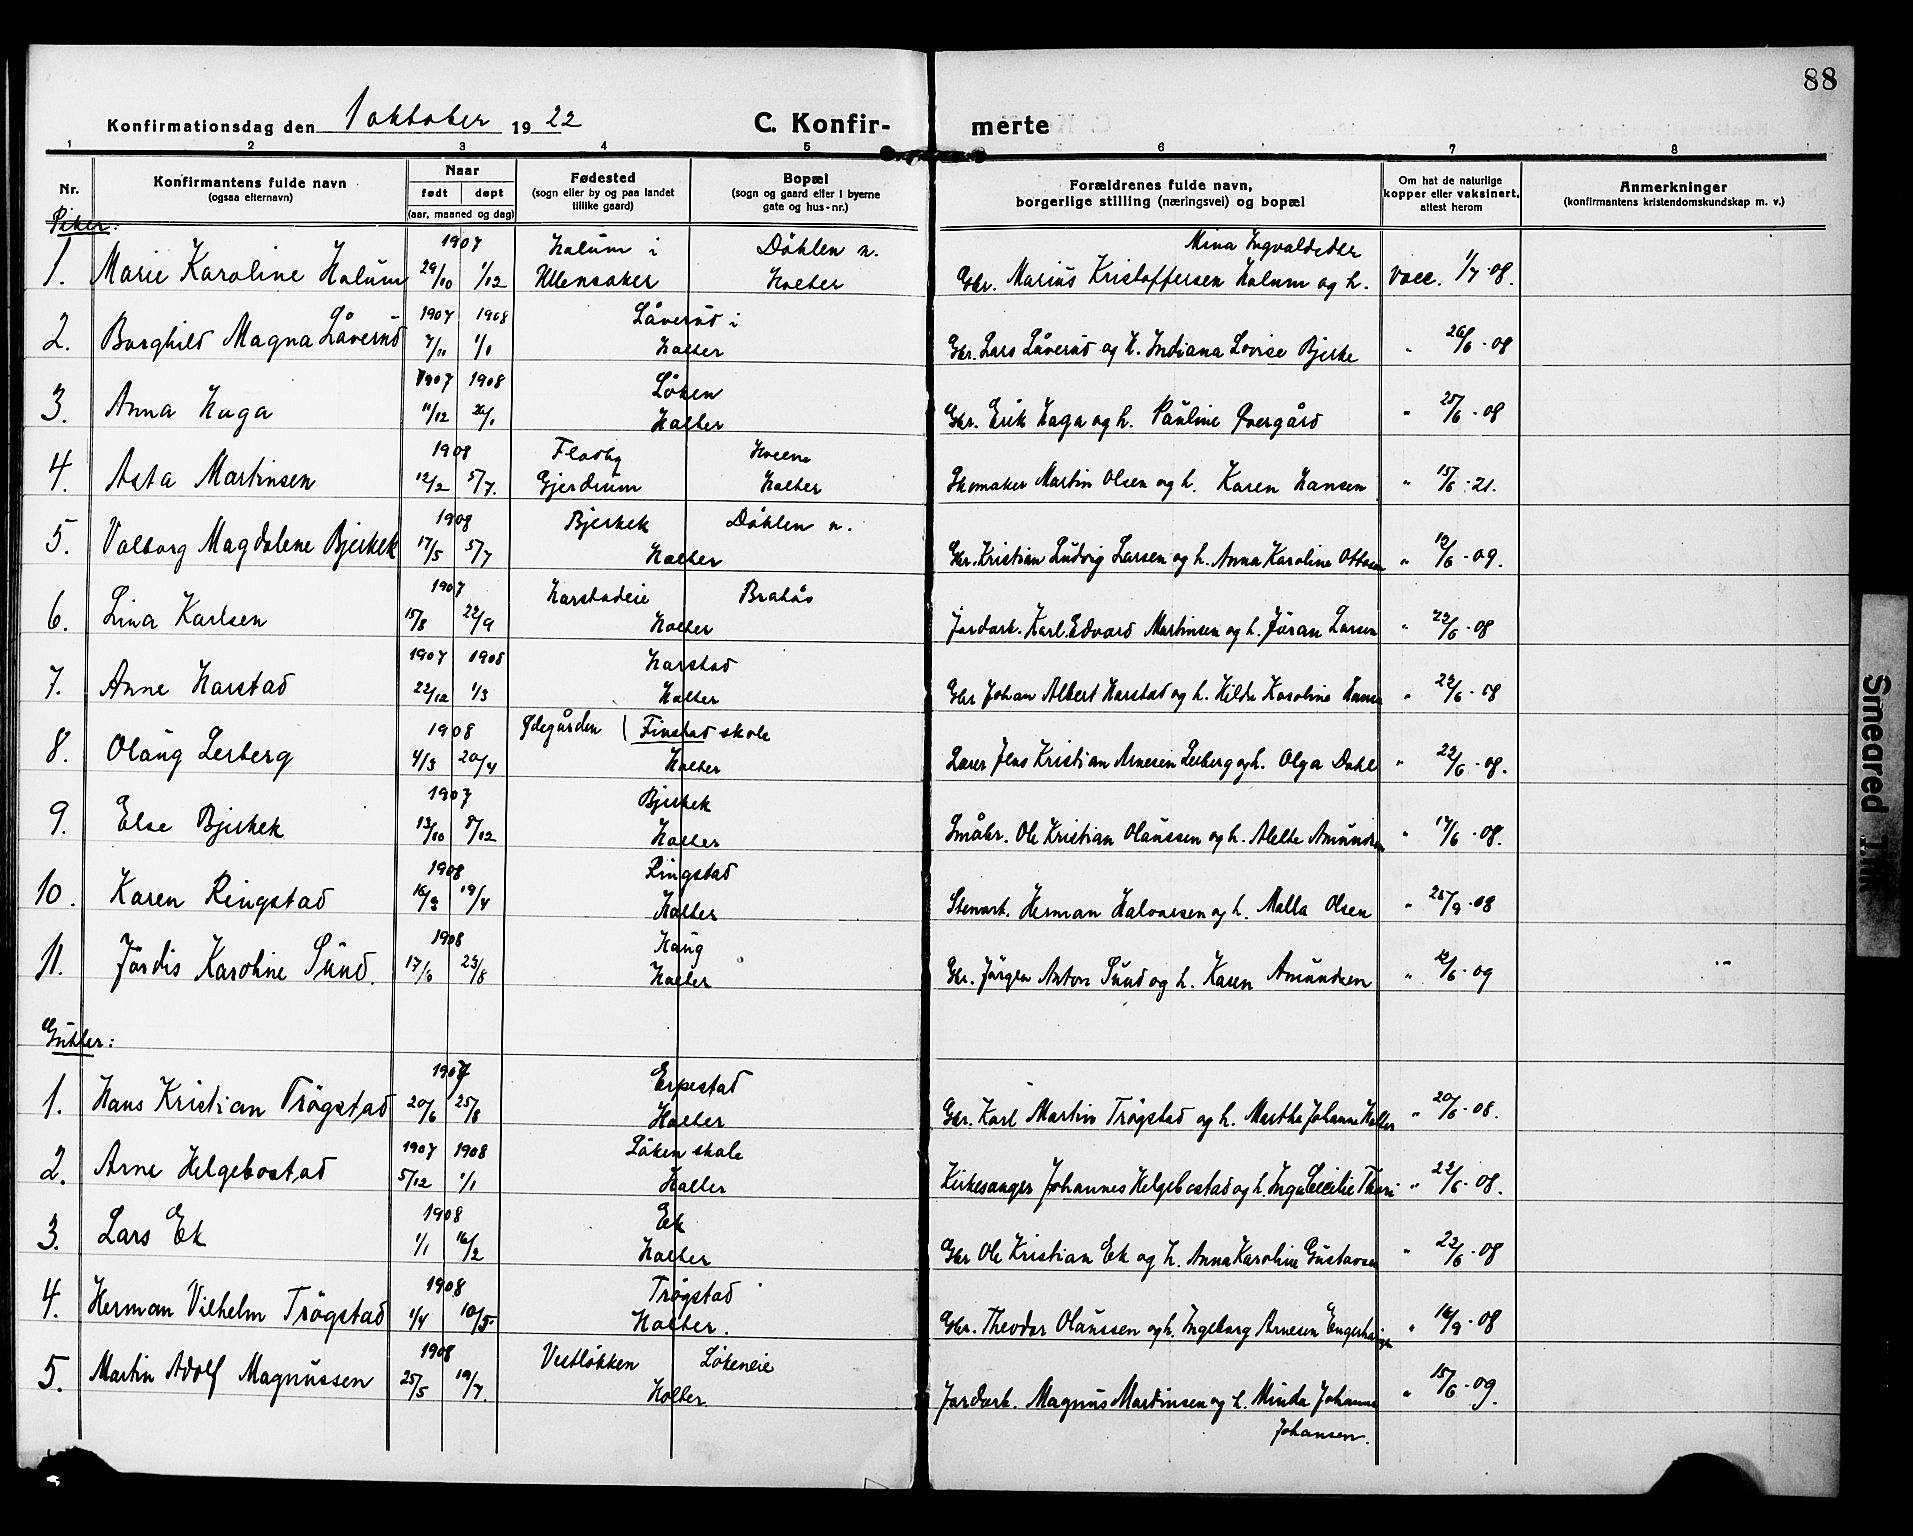 88
Konfirmationsdag den 1 oktober 1922
C. Konfirmerte
1 2 3 4 5 6 7 8
Nr.
Konfirmantens fulde navn
(ogsaa efternavn)
Naar
født døpt
(aar, maaned og dag)
Fødested
(sogn eller by og paa landet
tillike gaard)
Bopæl
(sogn og gaard eller i byerne
gate og hus-nr.)
Forældrenes fulde navn,
borgerlige stilling (næringsvei) og bopæl
Om hat de naturlige
kopper eller vaksinert,
attest herom
Anmerkninger
(konfirmantens kristendomskundskap m. v.)
Piker:
1907 Holum i Døhlen n. Mina Ingvaldsdtr
1. Marie Karoline Holum 29/10 1/12 Ullensaker Holter Gbr. Marius Kristoffersen Holum og h. vacc. 1/7 08.
1907 1908 Låverud i
2. Borghild Magna Låverud 7/11 1/1 Holter Gbr. Lars Låverud og h. Indiana Lovise Bjerke " 26/6 - 08
1907 1908 Løken
3. Anna Haga 11/12 26/1 Holter Gbr. Erik Haga og h. Pauline Overgård " 25/6 - 08
1908 Fladby Hoeene
4. Asta Martinsen 12/2 5/7. Gjerdrum Holter Skomaker Martin Olsen og h. Karen Hansen " 15/6 - 21.
1908 Bjerkek Døhlen n.
5. Valborg Magdalene Bjerkek 17/5 5/7 Holter Gbr. Kristian Ludvig Larsen og h. Anna Karoline Ottosen " 12/6 - 09.
1907 Harstadeie Bratås
6. Lina Karlsen 15/8 22/9 Holter Jordarb. Karl Edvard Martinsen og h. Jøran Larsen " 22/6 - 08
1907 1908 Harstad
7. Anne Harstad 22/12 1/3 Holter Gbr Johan Albert Harstad og h. Hilda Karoline Hansen " 22/6 - 08
1908 Ødegården / Finstad skole
8. Olaug Lerberg 4/3 20/4 Holter Lærer Jens Kristian Arnesen Lerberg og h. Olga Dahl " 22/6 - 08.
1907 Bjerkek
9. Else Bjerkek 13/10 8/12 Holter Småbr. Ole Kristian Olaussen og h. Alette Amundsen " 17/6 - 08.
1908 Ringstad
10. Karen Ringstad 16/3 19/4 Holter Stenarb. Herman Halvorsen og h. Malla Olsen " 25/9 - 08
1908 Haug
11. Jørdis Karoline Sund. 17/6 23/8 Holter Gbr. Jørgen Anton Sund og h. Karen Amundsen " 12/6 - 09
Gutter:
1907 Erpestad
1. Hans Kristian Trøgstad 20/6 25/8 Holter Gbr. Karl Martin Trøgstad og h. Marthe Johanne Holter " 20/6 - 08.
1907 1908 Løken skole
2. Arne Helgebostad 5/12 1/1 Holter Kirkesanger Johannes Helgebostad og h. Inga Cecilie " 22/6 - 08.
1908 Ek
3. Lars Ek 1/1 16/2 Holter Gbr Ole Kristian Ek og h. Anna Karoline Gustavsen " 22/6 - 08
1908 Trøgstad
4. Herman Vilhelm Trøgstad 1/4 10/5 Holter. Gbr. Theodor Olaussen og h. Ingeborg Arnesen " 16/9 - 08
1908 Vestløkken Løkeneie
5. Martin Adolf Magnussen 25/5 19/7. Holter Jordarb. Magnus Martinsen og h. Minda Johanne " 15/6 - 09.
Johansen.
Smeared Ink